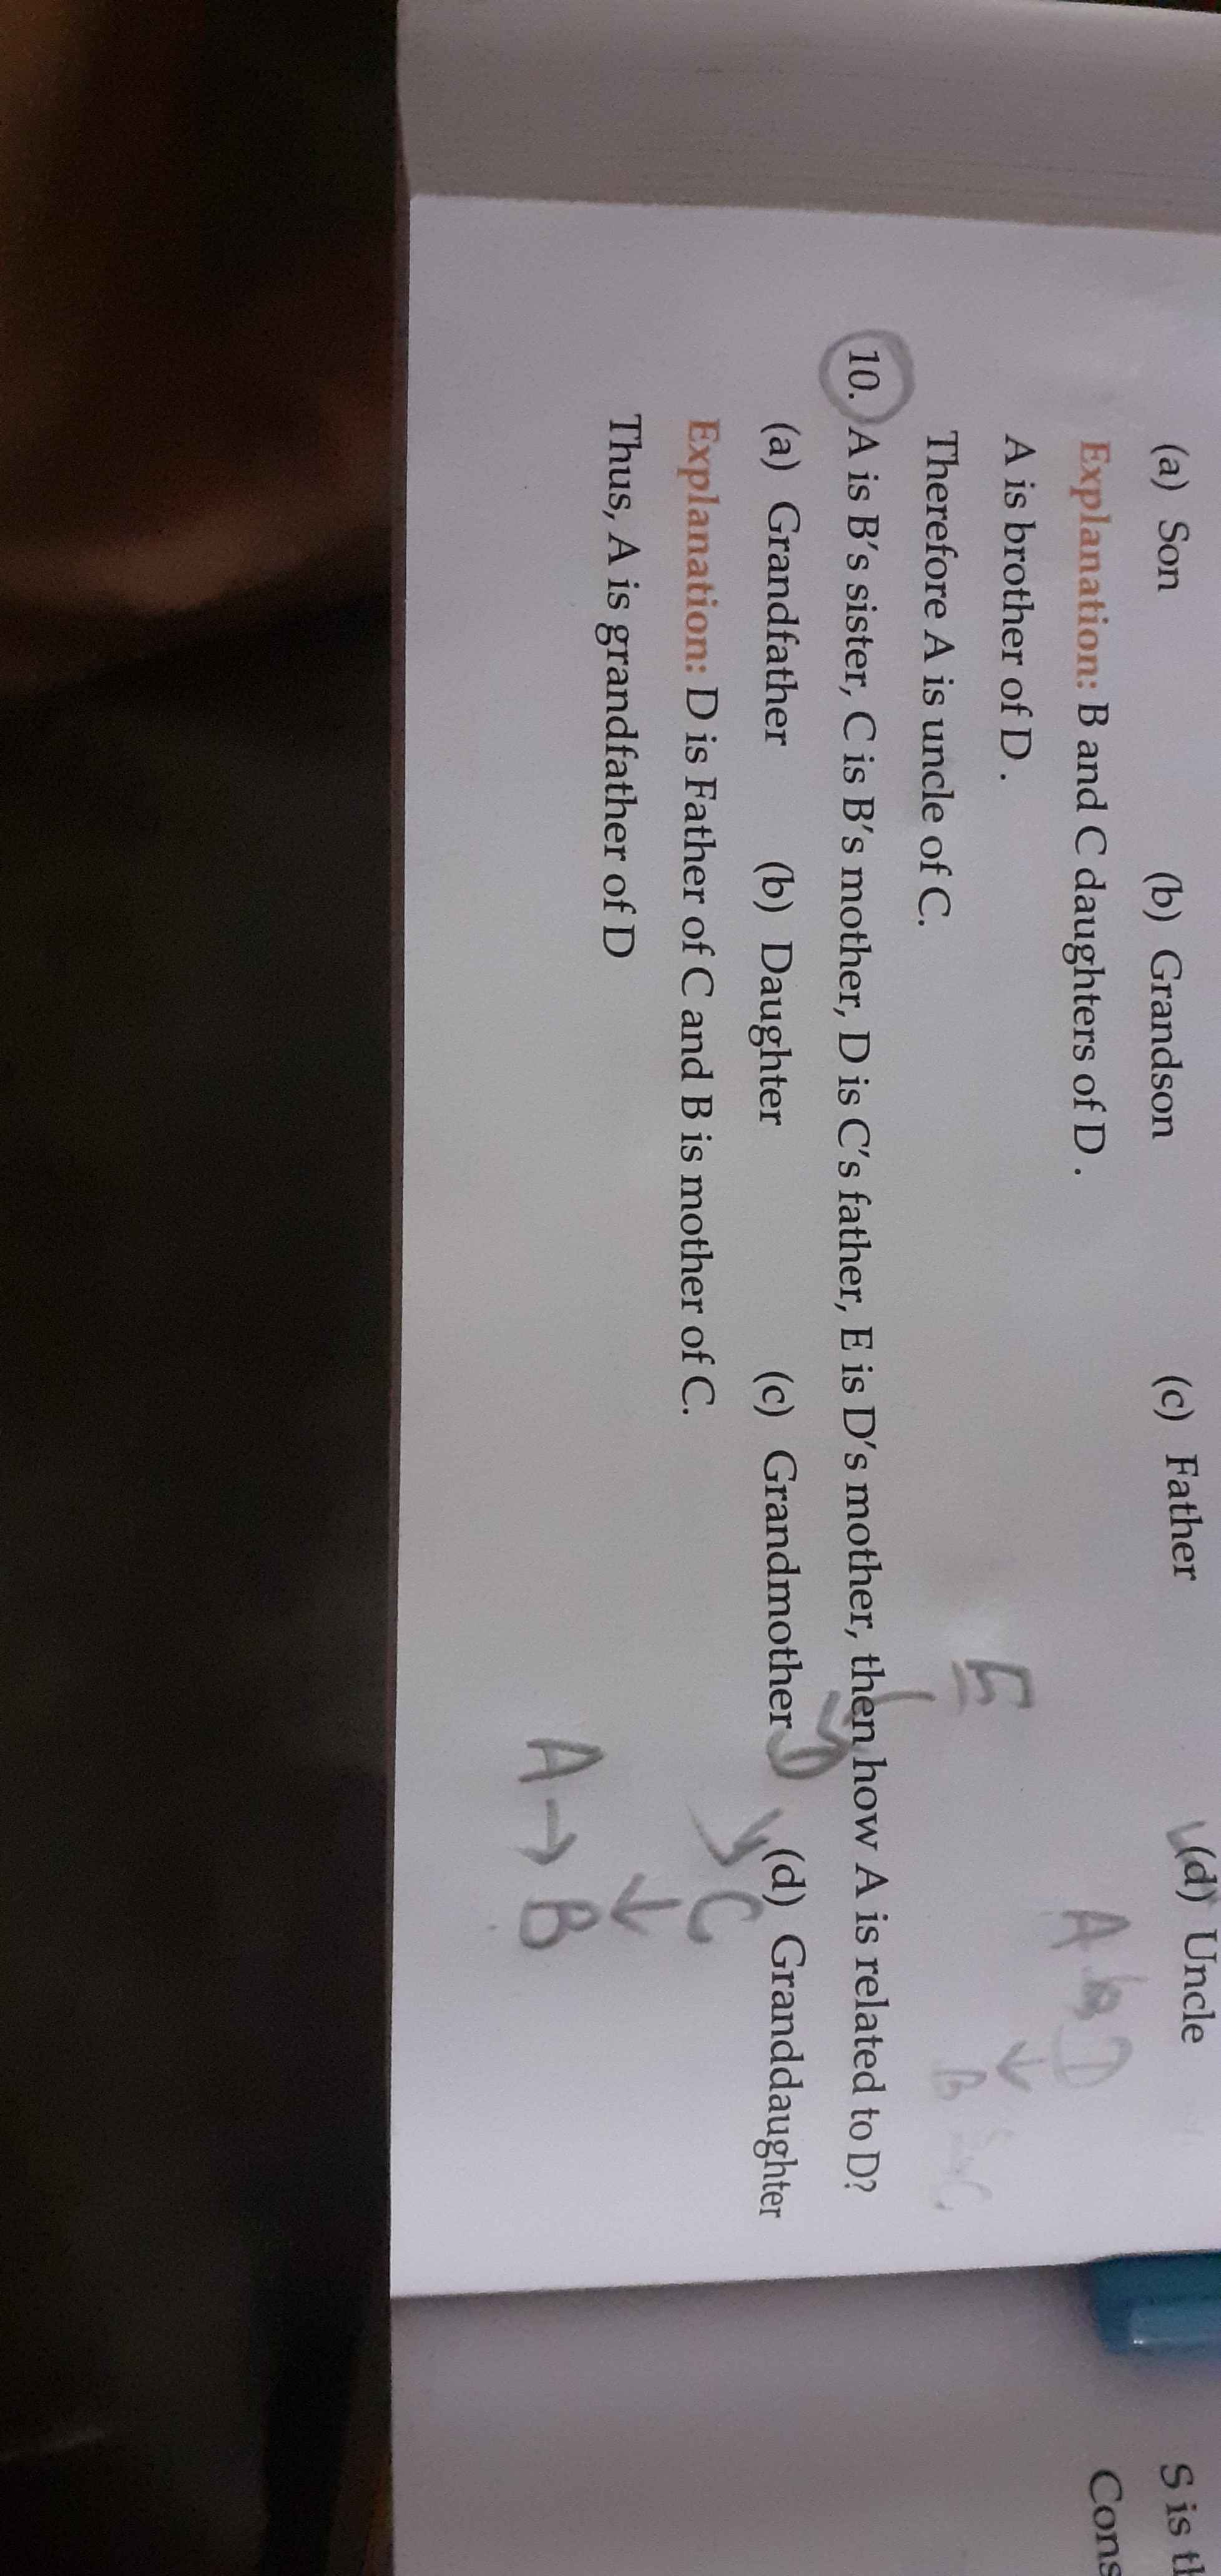 (a) Son (b) Grandson (c) Father (d) Uncle
Explanation: B and C daughters of D .
A is brother of D .
Therefore A is uncle of C.
10. A is B's sister, C is B's mother, D is C's father, E is D's mother, then how A is related to D?
(a) Grandfather (b) Daughter (c) Grandmother (d) Granddaughter
Explanation: D is Father of C and B is mother of C.
Thus, A is grandfather of D
A D
B C
E
D
C
A → B
S is
Cons